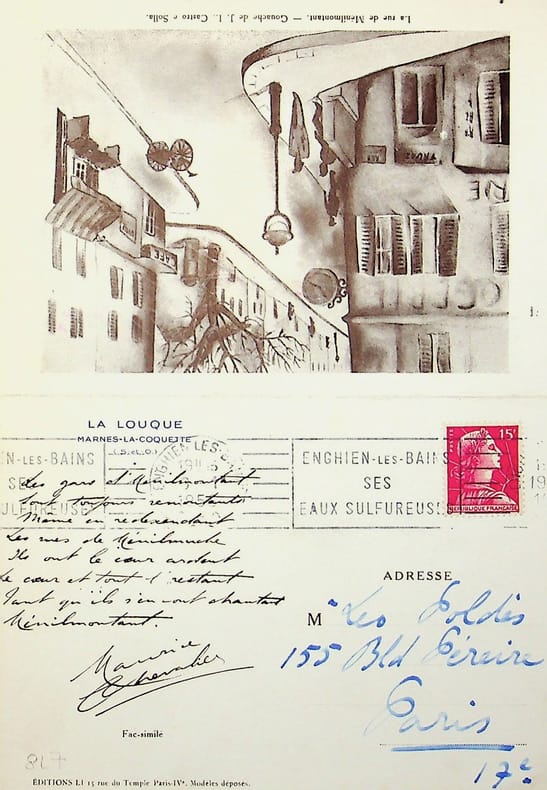 La rue de Ménilmontant. — Gouache de J. L. Castro e Solla.
CAFÉ
LA LOUQUE
MARNES-LA-COQUETTE
(S.-&-O.)
EN-LES-BAINS
SES
SULFUREUSES
ENGHIEN LES-B
19 H
195
ENGHIEN-LES-BAINS
SES
EAUX SULFUREUSES
15F
POSTES
REPUBLIQUE FRANÇAISE
Les gars d'Ménilmontant
Sont toujours remontants
Même en redescendant
Les rues de Ménilmuche
Ils ont le cœur ardent
Le cœur et tout l'restant
Tant qu'ils s'en vont chantant
Ménilmontant.
Maurice
Chevalier
Fac-similé
ADRESSE
M Leo Poldès
155 Bld Péreire
Paris
17e
817
ÉDITIONS LI 15 rue du Temple Paris-IVe. Modèles déposés.